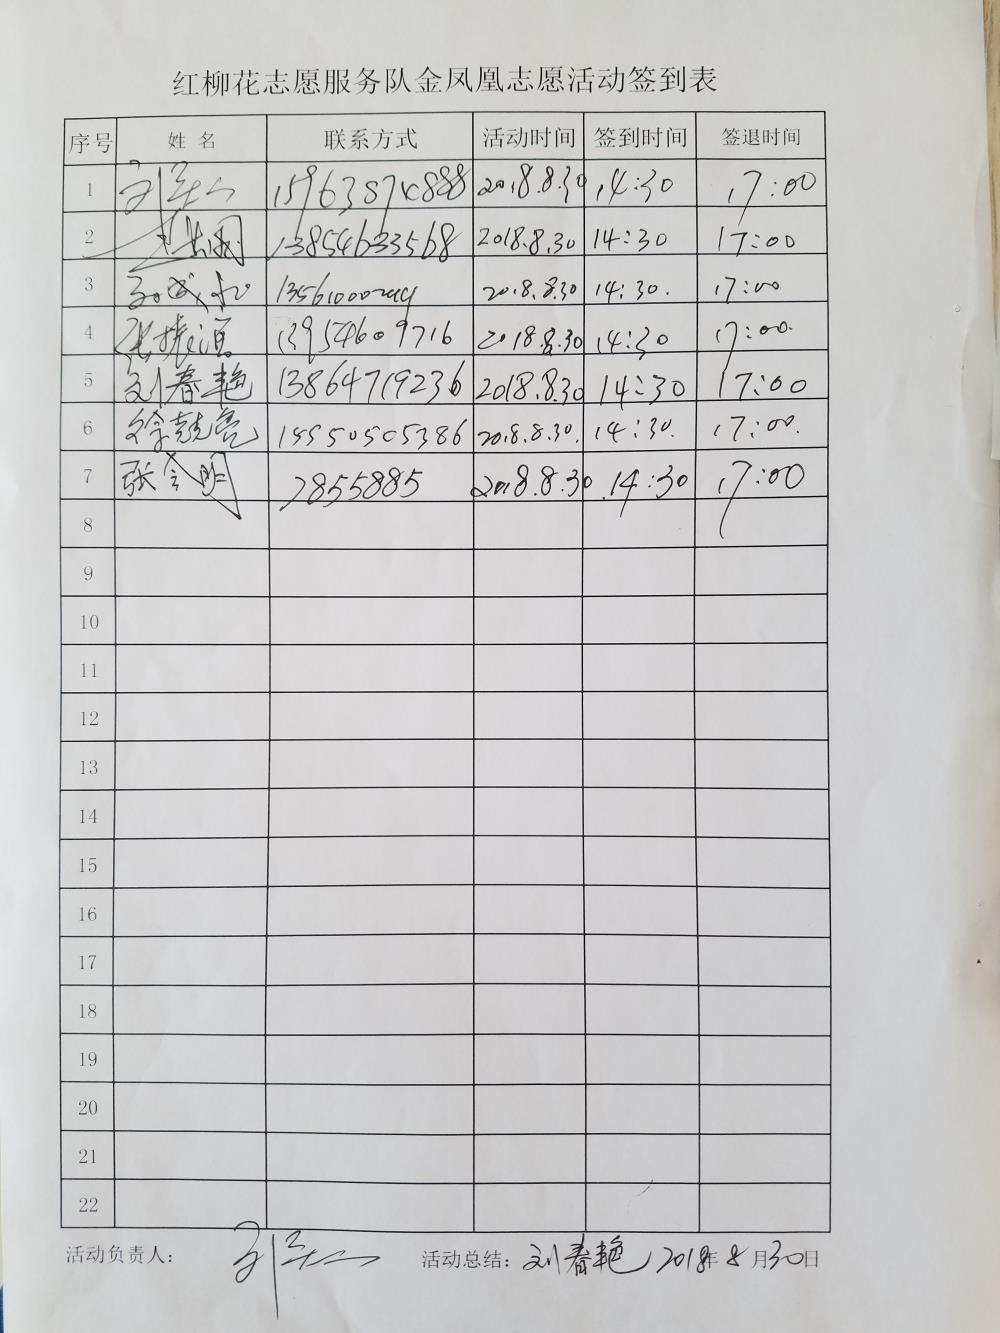 红柳花志愿服务队金凤凰志愿活动签到表
序号 姓名 联系方式 活动时间 签到时间 签退时间
1 2018.8.30 14:30 17:00
2 13854633568 2018.8.30 14:30 17:00
3 2018.8.30 14:30. 17:00
4 张振洹 13954609716 2018.8.30 14:30 17:00.
5 刘春艳 13864719236 2018.8.30 14:30 17:00
6 徐兢亮 15550505386 2018.8.30. 14:30. 17:00.
7 张会明 7855885 2018.8.30 14:30 17:00
8
9
10
11
12
13
14
15
16
17
18
19
20
21
22
活动负责人： 活动总结：刘春艳 2018年8月30日